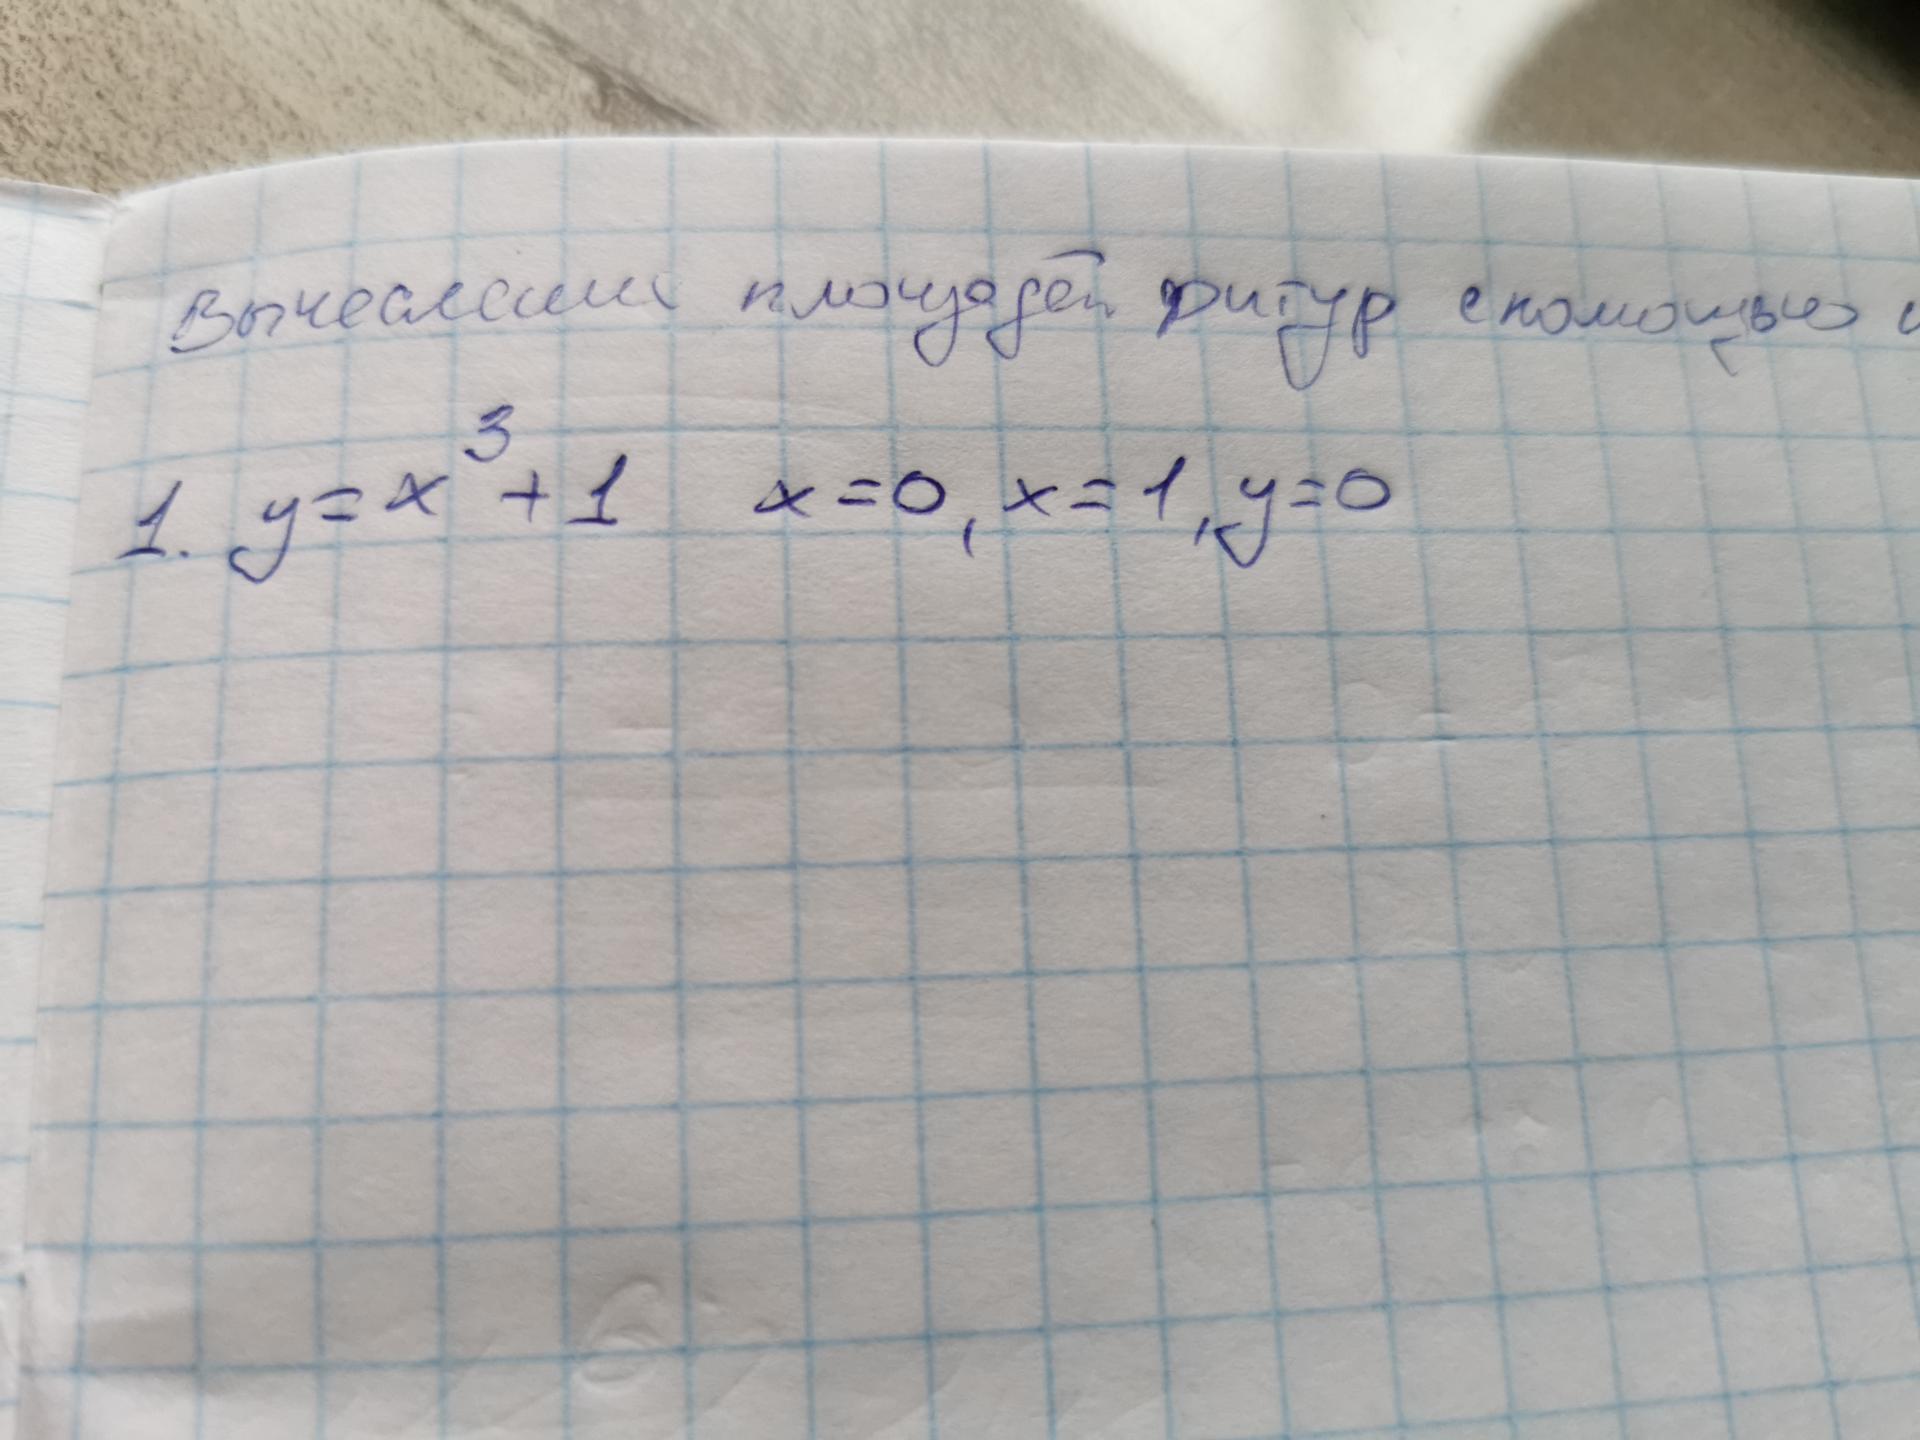 Вычесление площадей фигур с помощью и
1. y=x³+1 x=0, x=1, y=0